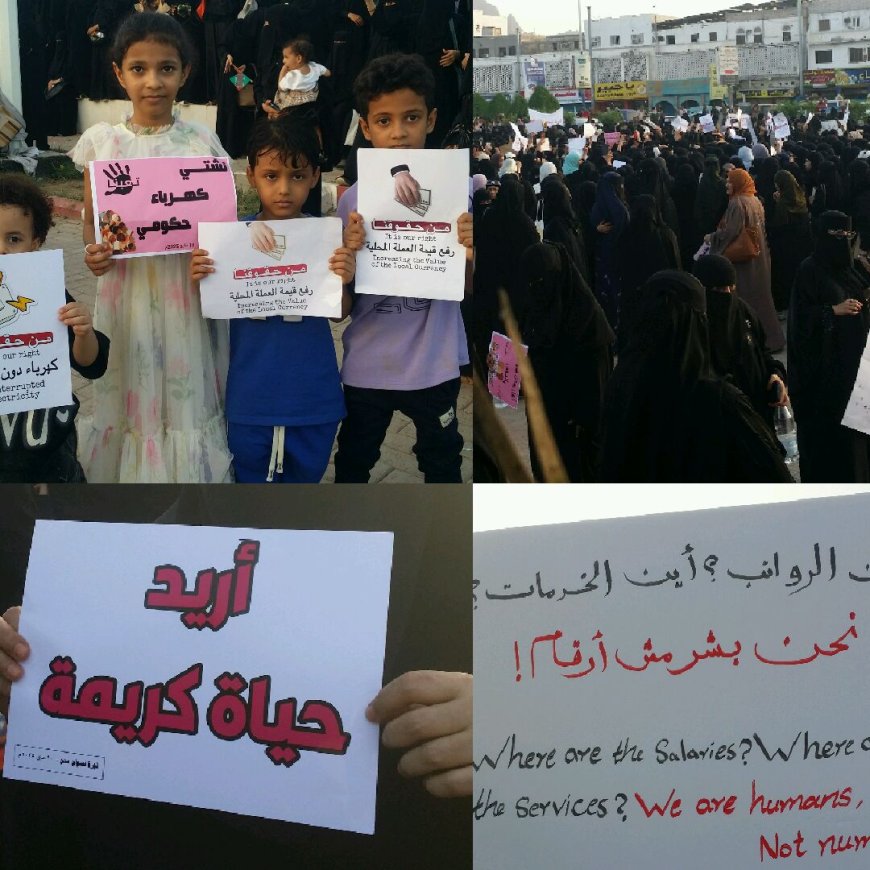 تعبنا
نشتي
كهرباء
حكومي
من حقوقنا
It is our right
رفع قيمة العملة المحلية
Increasing the Value
of the Local Currency
من حقوقنا
It is our right
رفع قيمة العملة المحلية
Increasing the Value
of the Local Currency
our right
كهرباء دون
أريد
حياة كريمة
الرواتب؟ أين الخدمات؟
نحن بشر مش أرقام!
Where are the Salaries? Where
the Services? We are humans,
Not